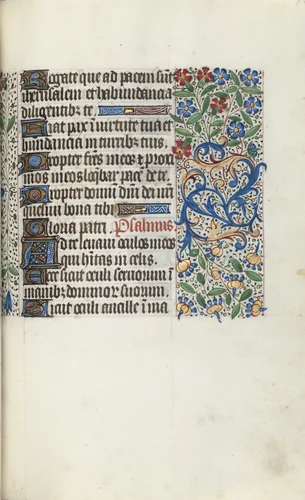 Rogate que ad pacem sunt
iherusalem et habundancia
diligentibz te
Fiat pax i virtute tua et
habundancia in turribz tuis.
Propter frēs meos & proxi
mos meos loqbar pacē de te.
Propter domū dn̄i dei nr̄i
quesiui bona tibi
Gloria patri. Psalmus
Ad te leuaui oculos meos
qui hītas in celis.
Ecce sicut oculi seruorum ī
manibz dominor suorum.
Sicut oculi ancille ī ma